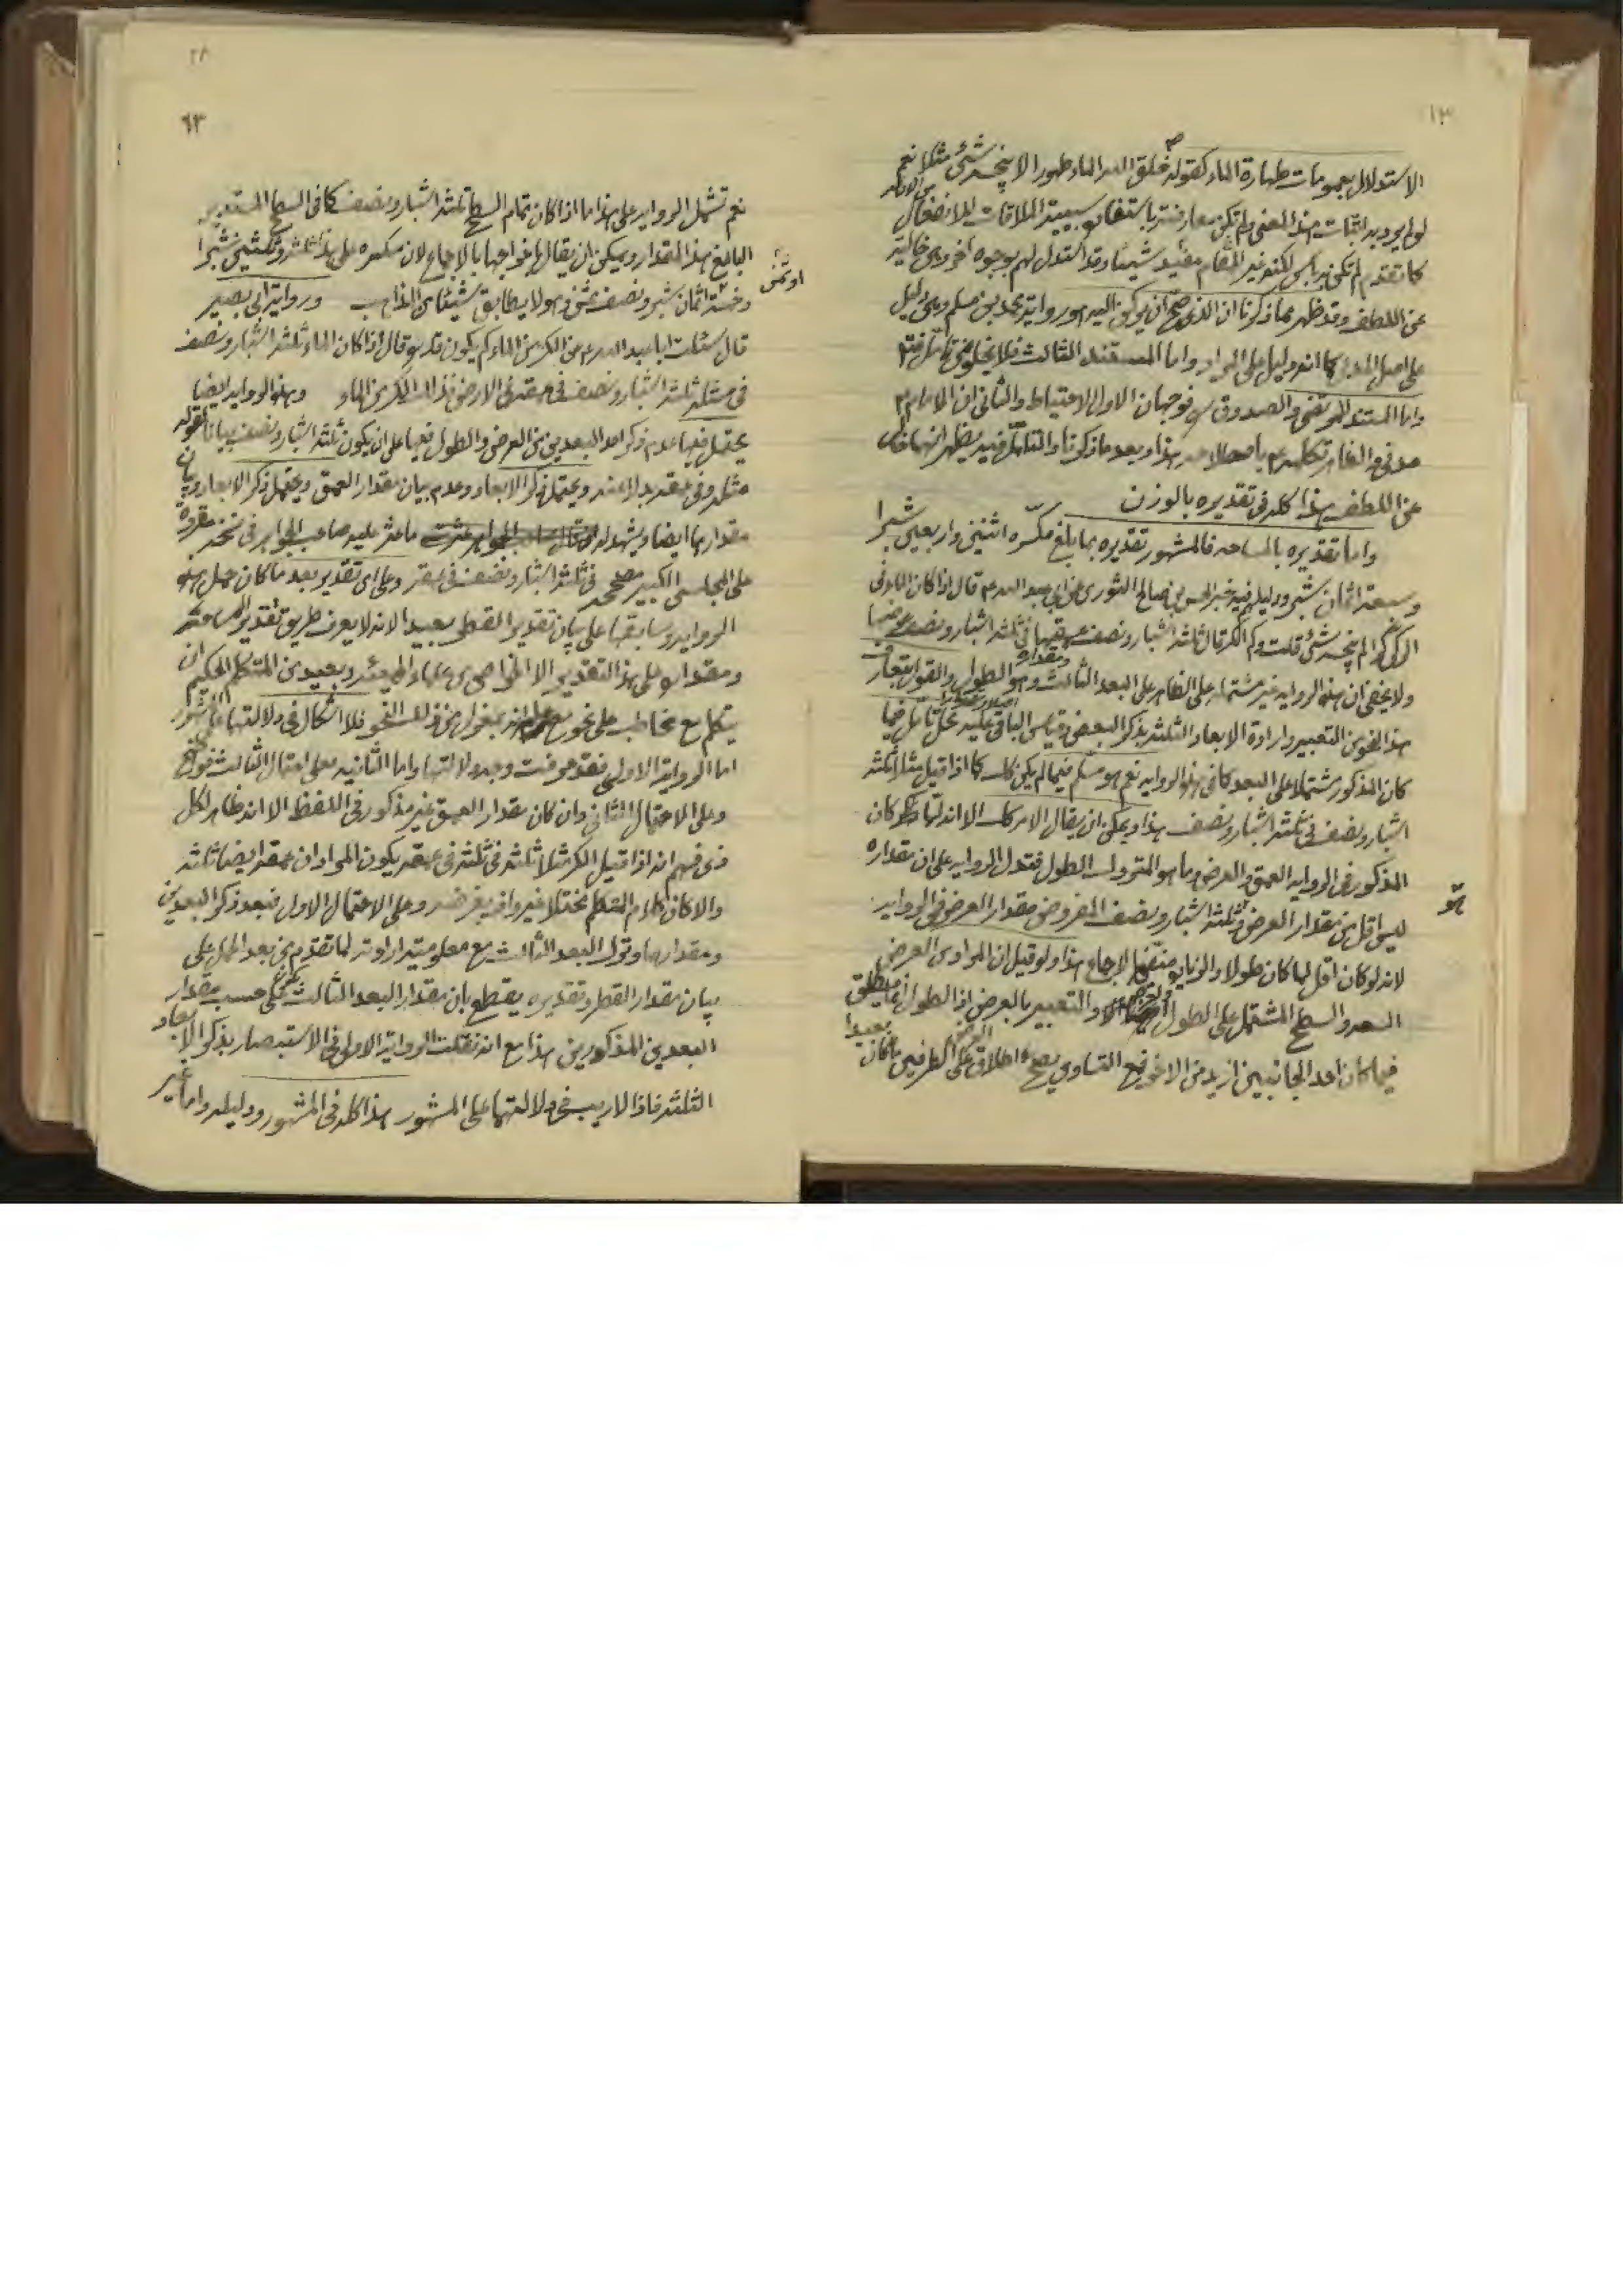 ١٣
الاستدلال بعمومات طهارة الماء كقوله خلق الله الماء طهورا لا ينجسه شئ مثلا نعم
لو اريد به اثبات هذا المعنى ولم تكن معارضته باستفادة سببية الملاقات للانفعال
كما تقدم لم تكن به باس لكنه غير المقام مفيد شيئا وقد استدل لهم بوجوه اخروى خالية
عن اللطف وقد ظهر مما ذكرنا ان الذى صح ان يركن اليه هو رواية محمد بن مسلم وهى دليل
على اصل المدعى كما انه دليل على المراد واما المستند الثالث فلا يخلو عن تامل فتم
واما المستند للمرتضى والصدوق فوجهان الاول الاحتياط والثانى ان الامام
هذا وبعد ما ذكرنا والتامل فيه يظهر انهما خال
عن اللطف هذا كله فى تقديره بالوزن
واما تقديره بالمساحه فالمشهور تقديره بما بلغ مكسره اثنين واربعين شبرا
وسبعة اثمان شبر ودليله فيه خبر الحسن بن صالح الثورى عن ابى عبد الله ع قال اذا كان الماء فى
الركى كرا لم ينجسه شئ قلت وكم الكر قال ثلثه اشبار ونصف عمقها فى ثلثه اشبار ونصف عرضها
ولا يخفى ان هذه الروايه غير مشتمله على الظاهر على البعد الثالث وهو الطول ومقداره والقول بتعارف
هذا النحو من التعبير وارادة الابعاد الثلثه بذكر البعض وقياس الباقى عليه محل تامل فيما
كان المذكور مشتملا على البعد كما فى هذه الروايه نعم هو مسلم فيما لم يكن كك كما اذا قيل مثلا ثلثه
اشبار ونصف فى ثلثه اشبار ونصف هذا ويمكن ان يقال الامر كك الا انه لما كان
المذكور فى الروايه العمق والعرض وما هو المتروك الطول فتدل الروايه على ان مقداره
ليس اقل من مقدار العرض وثلثه اشبار ونصف المفروض مقدار العرض فى الروايه
لانه لو كان اقل لما كان طولا والزياده منتفية بالاجماع هذا ولو قيل ان المراد من العرض
السعه والسطح المشتمل على الطول والعرض والتعبير بالعرض اذ الطول انما يطلق
فيما كان احد الجانبين ازيد من الاخر فمع التساوى يصح اطلاق العرض على الطرفين ما كان بعيدا
٢٨
٦٣
نعم تشمل الروايه على هذا ما اذا كان تمام السطح ثلثه اشبار ونصف كما فى السطح المستدير
البالغ هذا المقدار ويمكن ان يقال باخراجها بالاجماع لان مكسره على هذا ثلثه وثلثين شبرا
وخمسة اثمان شبر ونصف ثمن وهو لا يطابق شيئا من المذاهب ورواية ابى بصير
قال سئلت ابا عبد الله ع عن الكر من الماء كم يكون قدره قال اذا كان الماء ثلثه اشبار ونصف
فى مثله ثلثه اشبار ونصف فى عمقه فى الارض فذلك الكر من الماء وهذه الروايه ايضا
يحتمل فيها عدم ذكر احد البعدين من العرض والطول فيها على ان يكون ثلثه اشبار ونصف بيانا لقوله
مثله وفى عمقه بدلا عنه ويحتمل ذكر الابعاد وعدم بيان مقدار العمق ويحتمل ذكر الابعاد وبيان
مقدارها ايضا ويشهد له ما عثر عليه صاحب الجواهر فى نسخه مقروة
على المجلسى الكبير مصححه فى ثلثه اشبار ونصف فى عمقه وعلى اى تقدير بعد ما كان حمل هذه
الروايه وسابقتها على بيان تقدير القطر بعيدا لانه لا يعرف طريق تقدير المساحه
ومقداره على هذا التقدير الا الخواص من علماء الهيئه وبعيد من المتكلم الحكيم ان
يتكلم مع مخاطب على نحو مع علمه انه بمعزل عن ذلك النحو فلا اشكال فى دلالتها على المشهور
اما الرواية الاولى فقد عرفت وجه دلالتها واما الثانيه فعلى احتمال الثالث فواضح
وعلى الاحتمال الثانى وان كان مقدار العمق غير مذكور فى اللفظ الا انه ظاهر لكل
ذى فهم انه اذا قيل الكر مثلا ثلثه فى ثلثه فى عمقه يكون المراد ان عمقه ايضا ثلثه
والا كان كلام المتكلم مختلا غير واف بغرضه وعلى الاحتمال الاول فبعد ذكر البعدين
ومقدارهما وترك البعد الثالث مع معلومية ارادته لما تقدم من بعد الحمل على
بيان مقدار القطر وتقديره يقطع بان مقدار البعد الثالث على حسب مقدار
البعدين المذكورين هذا مع انه نقلت الرواية الاولى فى الاستبصار بذكر الابعاد
الثلثه فاذا لا ريب فى دلالتها على المشهور هذا كله فى المشهور ودليله واما غير